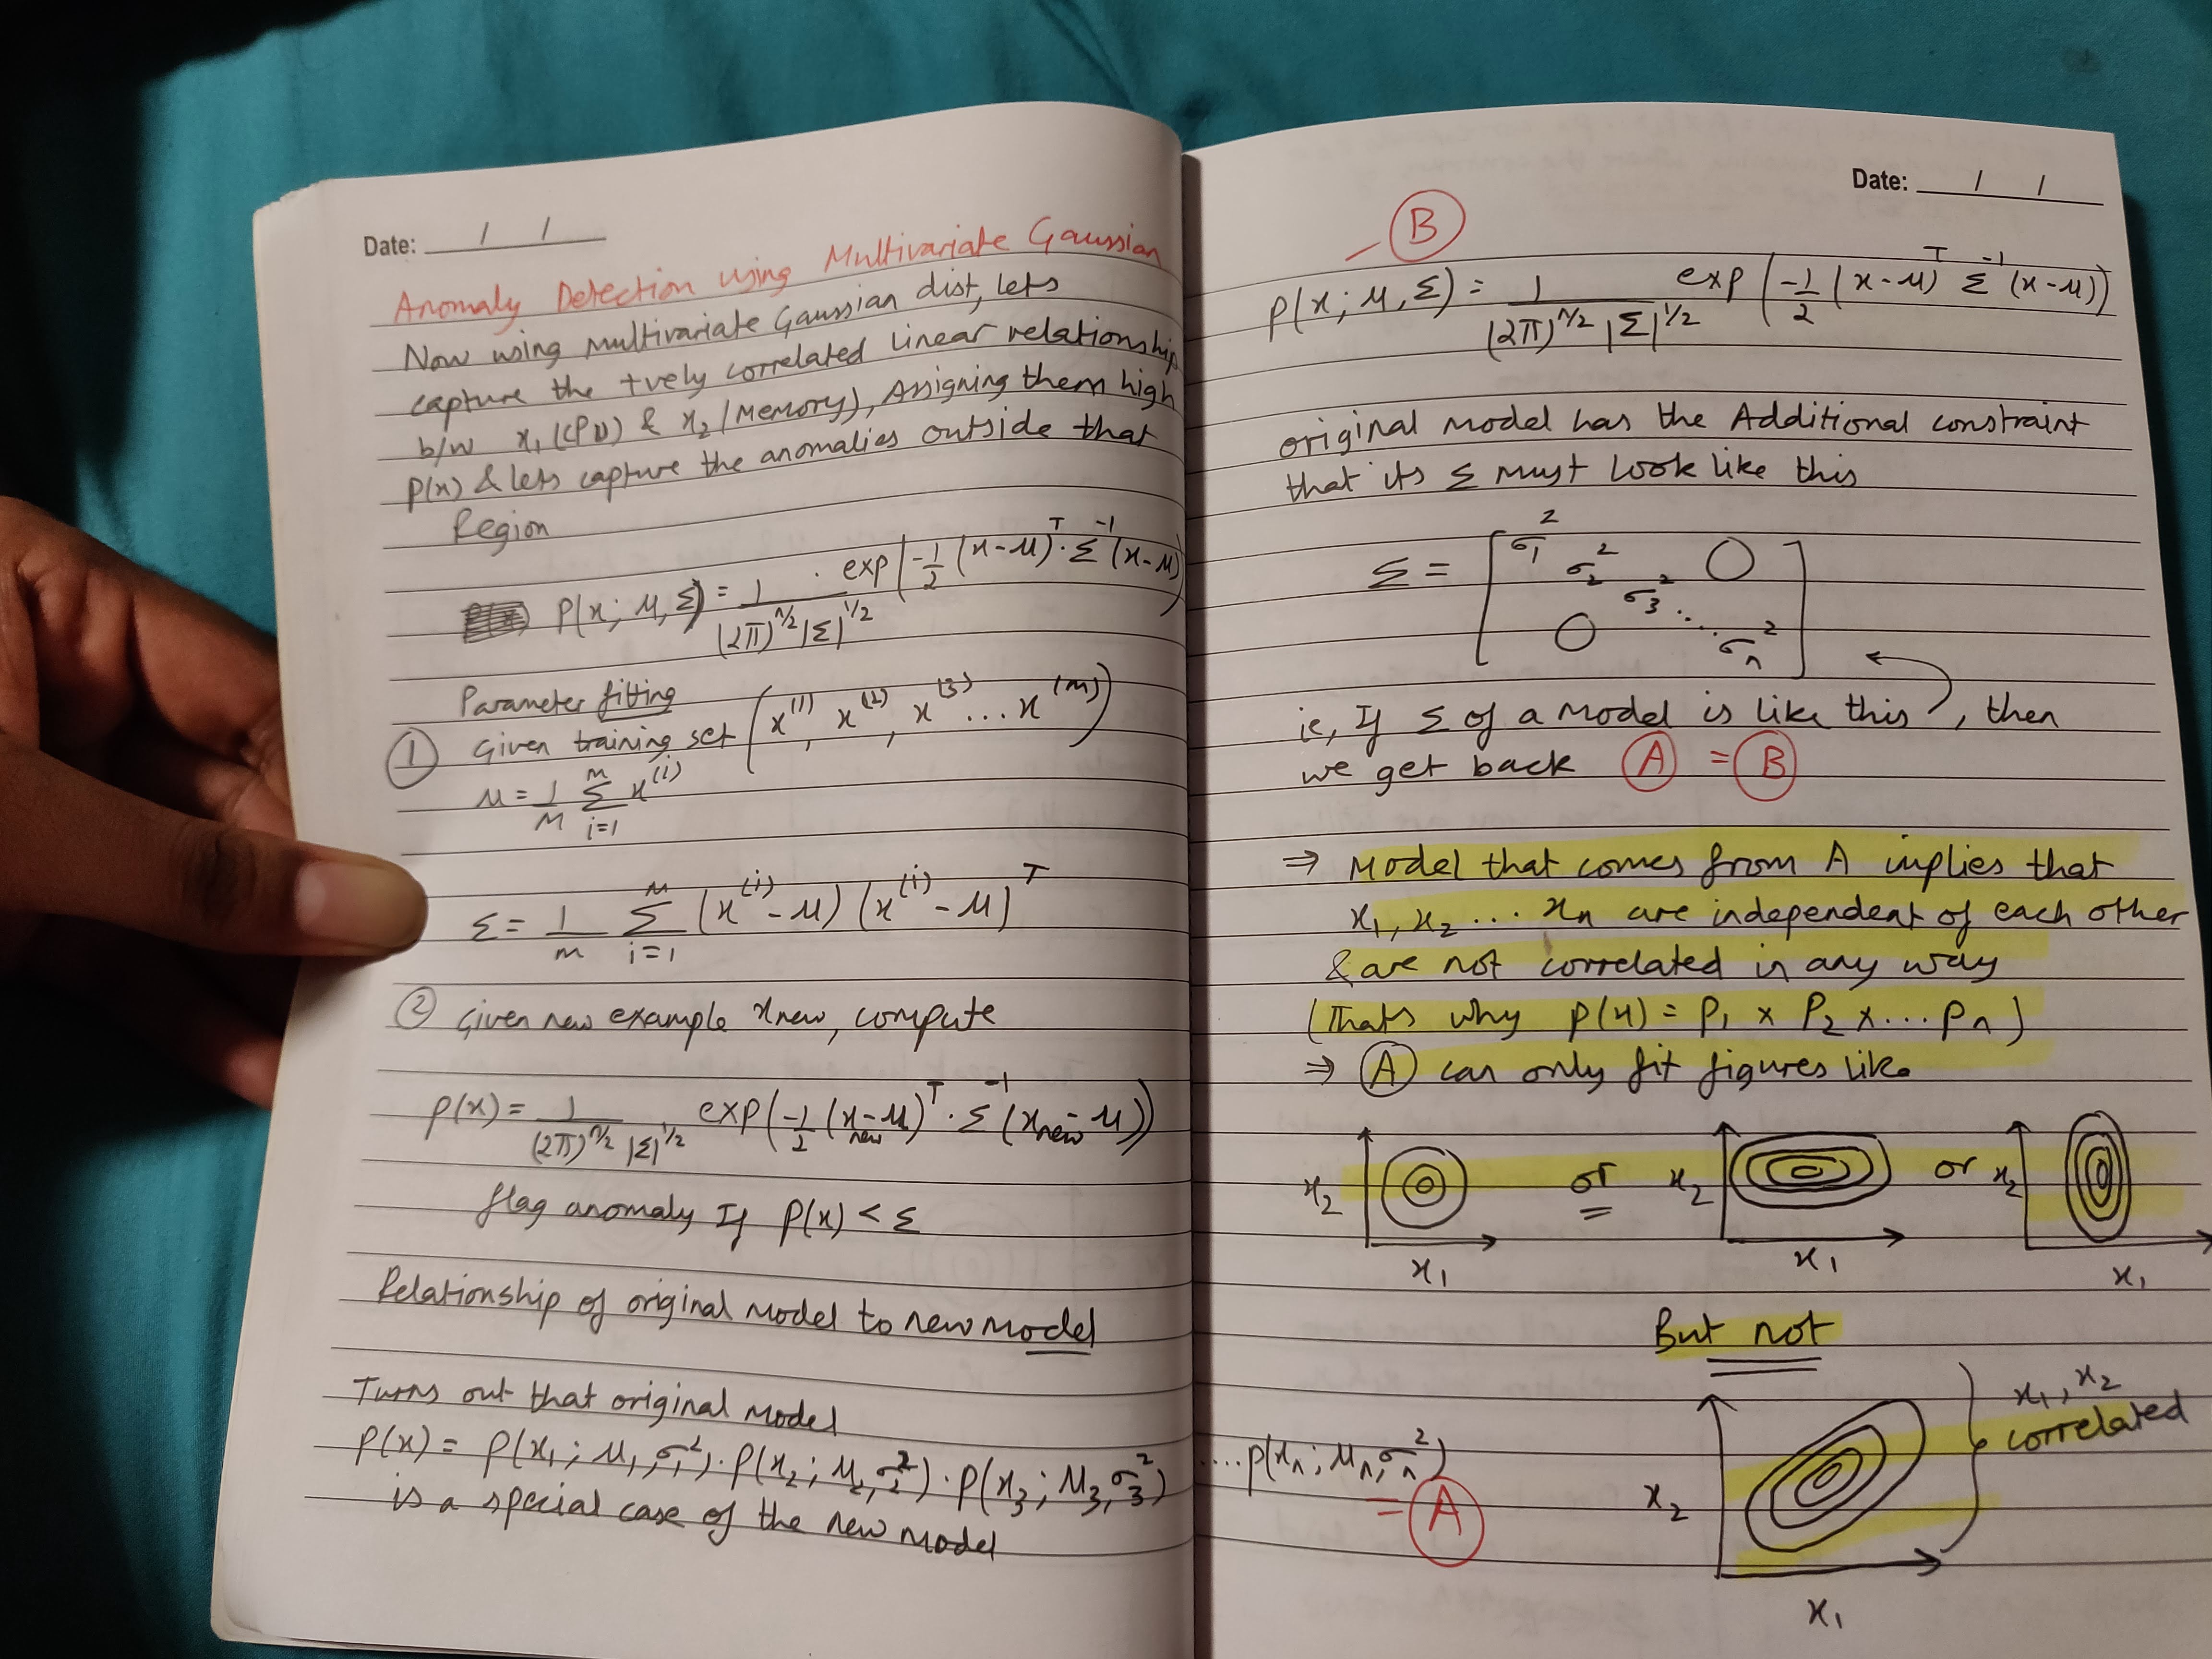 Date: / /
Anomaly Detection using Multivariate Gaussian
Now using multivariate Gaussian dist, lets
capture the +vely correlated linear relationship
b/w x₁(CPU) & x₂(Memory), Assigning them high
p(x) & lets capture the anomalies outside that
Region
P(x; μ, Σ) = 1/((2π)^(n/2) |Σ|^(1/2)) · exp(-1/2 (x-μ)^T · Σ^(-1) (x-μ))
Parameter fitting
① Given training set (x^(1), x^(2), x^(3) ... x^(m))
μ = 1/m Σ_{i=1}^{m} x^(i)
Σ = 1/m Σ_{i=1}^{m} (x^(i) - μ) (x^(i) - μ)^T
② Given new example x new, compute
p(x) = 1/((2π)^(n/2) |Σ|^(1/2)) exp(-1/2 (x_new - μ)^T · Σ^(-1) (x_new - μ))
flag anomaly If P(x) < ε
Relationship of original model to new model
Turns out that original model
p(x) = p(x₁; μ₁, σ₁²) · p(x₂; μ₂, σ₂²) · p(x₃; μ₃, σ₃²) .... p(xₙ; μₙ, σₙ²)
= A
is a special case of the new model
Date: / /
– B
p(x; μ, Σ) = 1/((2π)^(n/2) |Σ|^(1/2)) exp(-1/2 (x-μ)^T Σ^(-1) (x-μ))
original model has the Additional constraint
that its Σ must look like this
Σ = [σ₁² σ₂² σ₃² ... σₙ² 0 0]
ie, If Σ of a model is like this, then
we get back A = B
⇒ Model that comes from A implies that
x₁, x₂ ... xₙ are independent of each other
& are not correlated in any way
(Thats why p(x) = P₁ x P₂ x ... Pₙ)
⇒ A can only fit figures like
x₂ or x₂ or x₂
x₁ x₁ x₁
But not
x₁, x₂
correlated
x₂
x₁